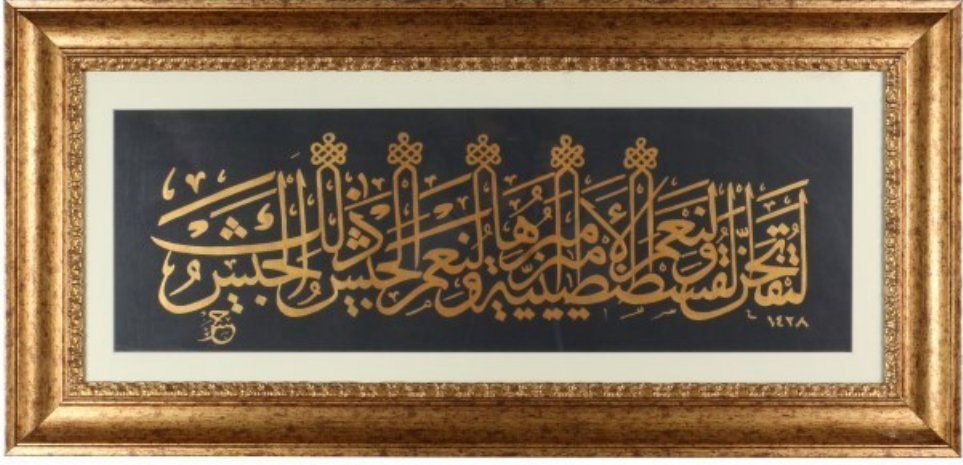 لتفتحن القسطنطينية ولنعم الأمير أميرها ولنعم الجيش ذلك الجيش
١٤٢٨